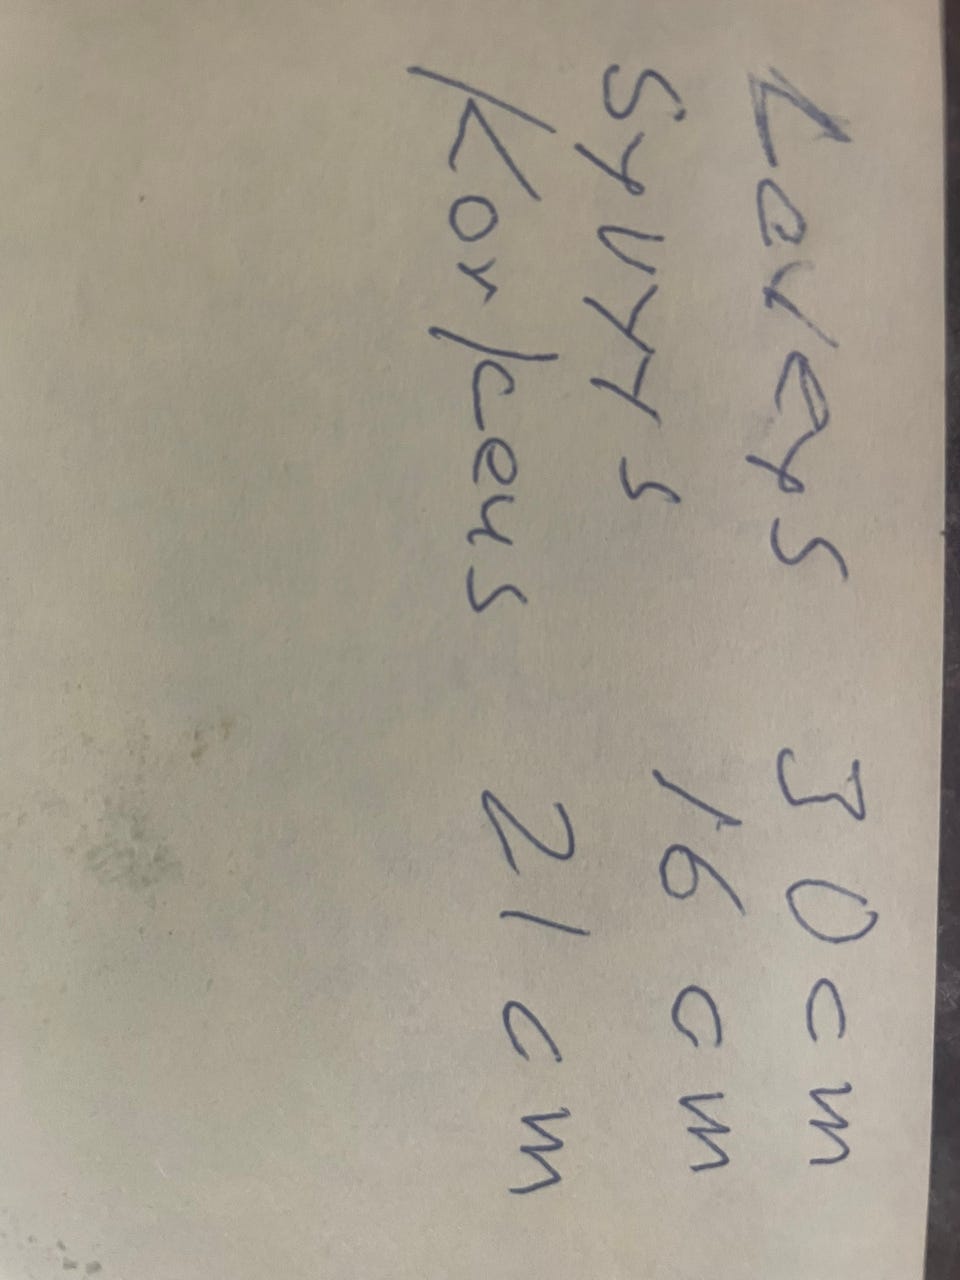 Laveys 30 cm
Syvyys 16 cm
Korkeus 21 cm